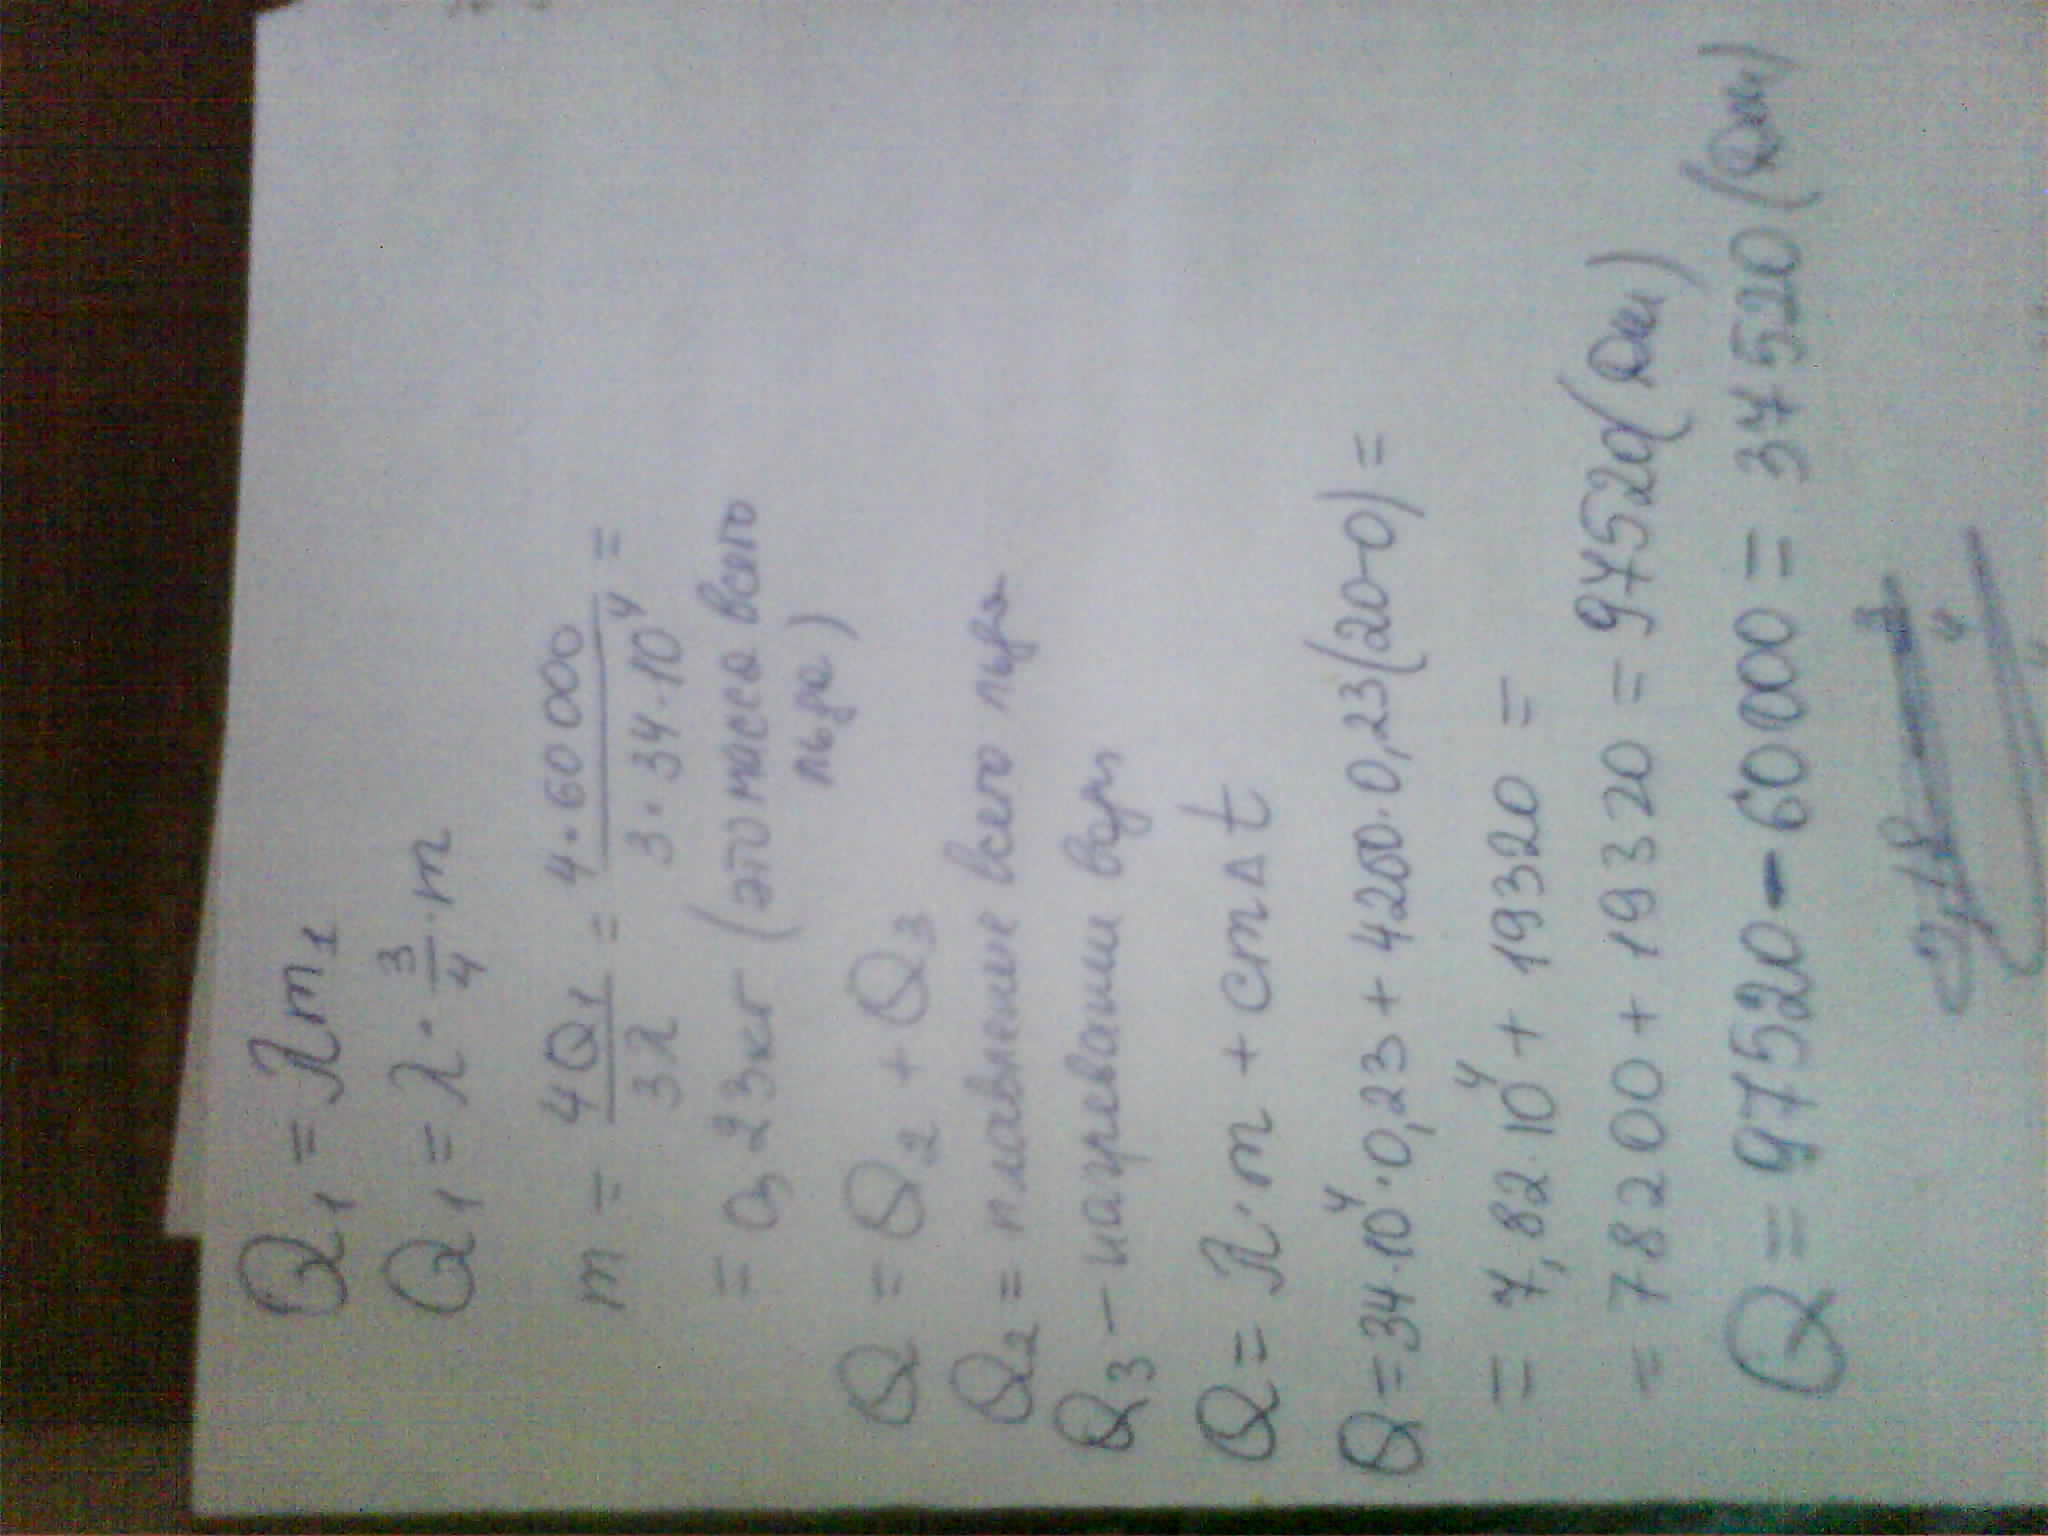 Q₁ = λm₁
Q₁ = λ · 3/4 · m
m = 4Q₁/3λ = 4·60 000/3·34·10⁴ =
= 0,23кг (это масса всего
льда)
Q = Q₂ + Q₃
Q₂ = плавление всего льда
Q₃ – нагревании воды
Q = λ·m + cmΔt
Q = 34·10⁴·0,23 + 4200·0,23(20-0) =
= 7,82·10⁴ + 19320 =
= 78200 + 19320 = 97520(Дж)
Q = 97520 - 60000 = 37520 (Дж)